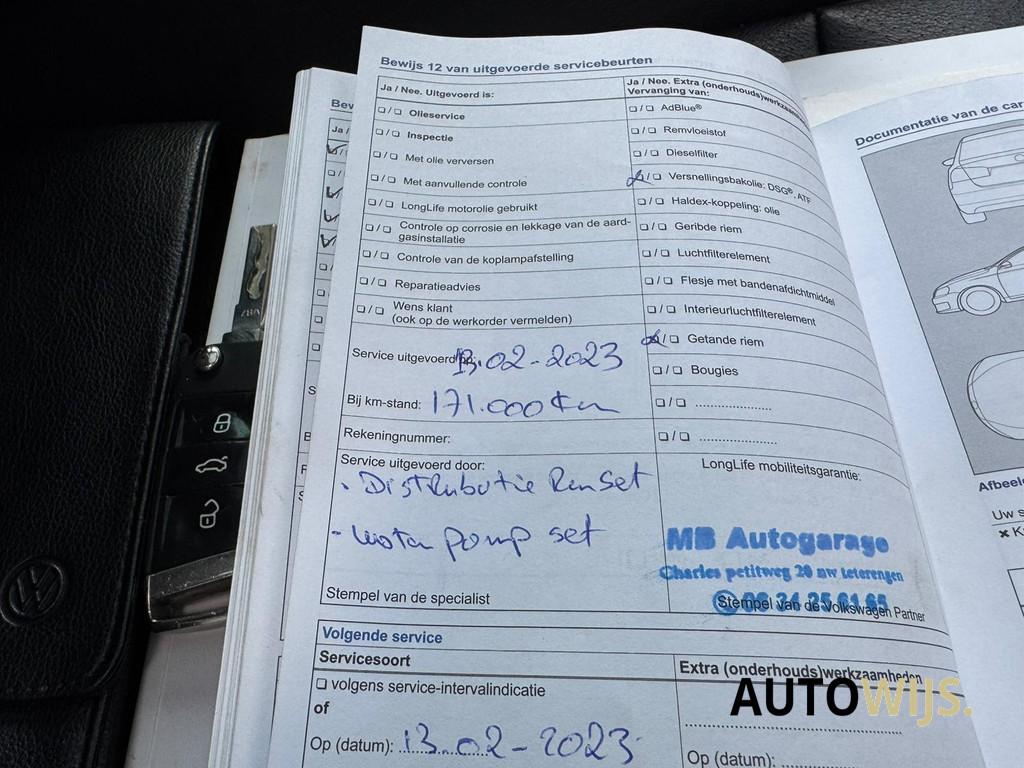 Bewijs 12 van uitgevoerde servicebeurten
Ja / Nee. Uitgevoerd is:
❑ / ❑ Olieservice
❑ / ❑ Inspectie
❑ / ❑ Met olie verversen
❑ / ❑ Met aanvullende controle
❑ / ❑ LongLife motorolie gebruikt
❑ / ❑ Controle op corrosie en lekkage van de aard-
gasinstallatie
❑ / ❑ Controle van de koplampafstelling
❑ / ❑ Reparatieadvies
❑ / ❑ Wens klant
(ook op de werkorder vermelden)
Service uitgevoerd op: 13.02-2023
Bij km-stand: 171.000 km
Rekeningnummer:
Service uitgevoerd door:
• Distributie Riemset
- Water pomp set
Stempel van de specialist
Ja / Nee. Extra (onderhouds)werkzaamheden
Vervanging van:
❑ / ❑ AdBlue®
❑ / ❑ Remvloeistof
❑ / ❑ Dieselfilter
❑ / ❑ Versnellingsbakolie: DSG®, ATF
❑ / ❑ Haldex-koppeling: olie
❑ / ❑ Geribde riem
❑ / ❑ Luchtfilterelement
❑ / ❑ Flesje met bandenafdichtmiddel
❑ / ❑ Interieurluchtfilterelement
❑ / ❑ Getande riem
❑ / ❑ Bougies
❑ / ❑ ....................
❑ / ❑ ....................
LongLife mobiliteitsgarantie:
MB Autogarage
Charles petitweg 20
Stempel van de Volkswagen Partner
Volgende service
Servicesoort
❑ volgens service-intervalindicatie
of
Op (datum): 13.02-2023
Extra (onderhouds)werkzaamheden
Op (datum):
Documentatie van de car
Afbeel
Uw s
Bew
Ja /
AUTOWIJS.